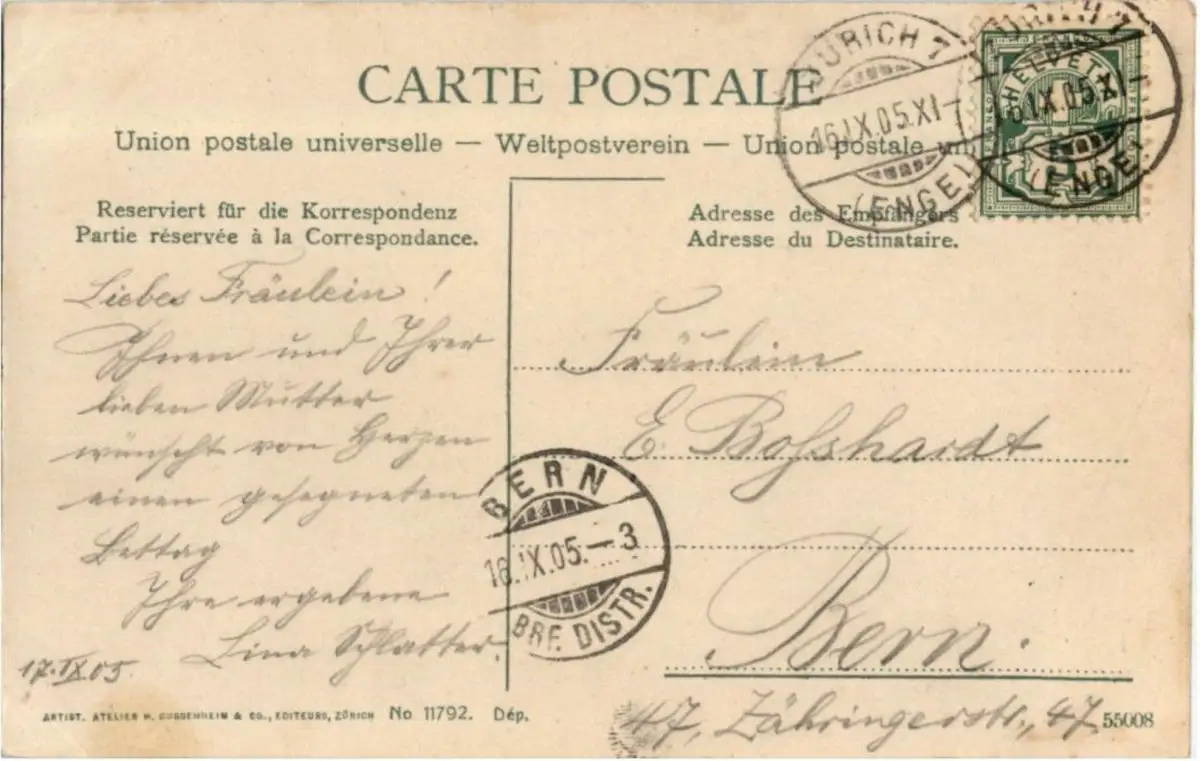 CARTE POSTALE
Union postale universelle — Weltpostverein — Union postale un
Reserviert für die Korrespondenz
Partie réservée à la Correspondance.
Liebes Fräulein!
Ihnen und Ihrer
lieben Mutter
wünscht von Herzen
einen gesegneten
Bettag
Ihre ergebene
Lina Schlatter.
17.IX.05
ZÜRICH 7
16.IX.05.XI-
(ENGE)
ZÜRICH 7
16.IX.05.XI-
(ENGE)
HELVETIA
Adresse des Empfängers
Adresse du Destinataire.
Fräulein
E. Boſshardt
Bern.
47, Zähringerstr., 47
BERN
16.IX.05.-3
BRF. DISTR.
ARTIST. ATELIER H. GUGGENHEIM & CO., EDITEURS, ZÜRICH No 11792. Dép.
55008